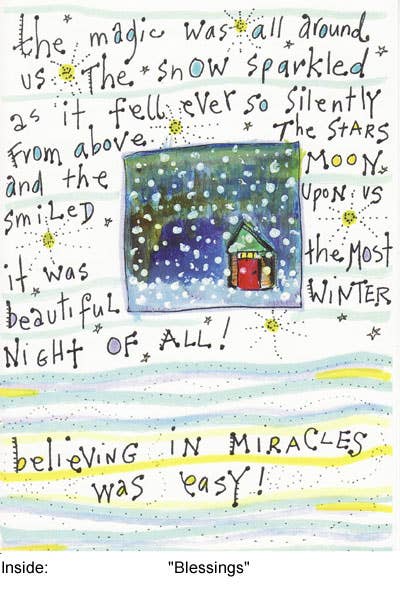 the magic was all around
us. The snow sparkled
as it fell ever so silently
from above. The STARS
and the MOON
SMiLED UPON US
it was the Most
beautiful WiNTER
NiGHT OF ALL!
believiNG iN MiRACLES
was easy!
Inside: "Blessings"